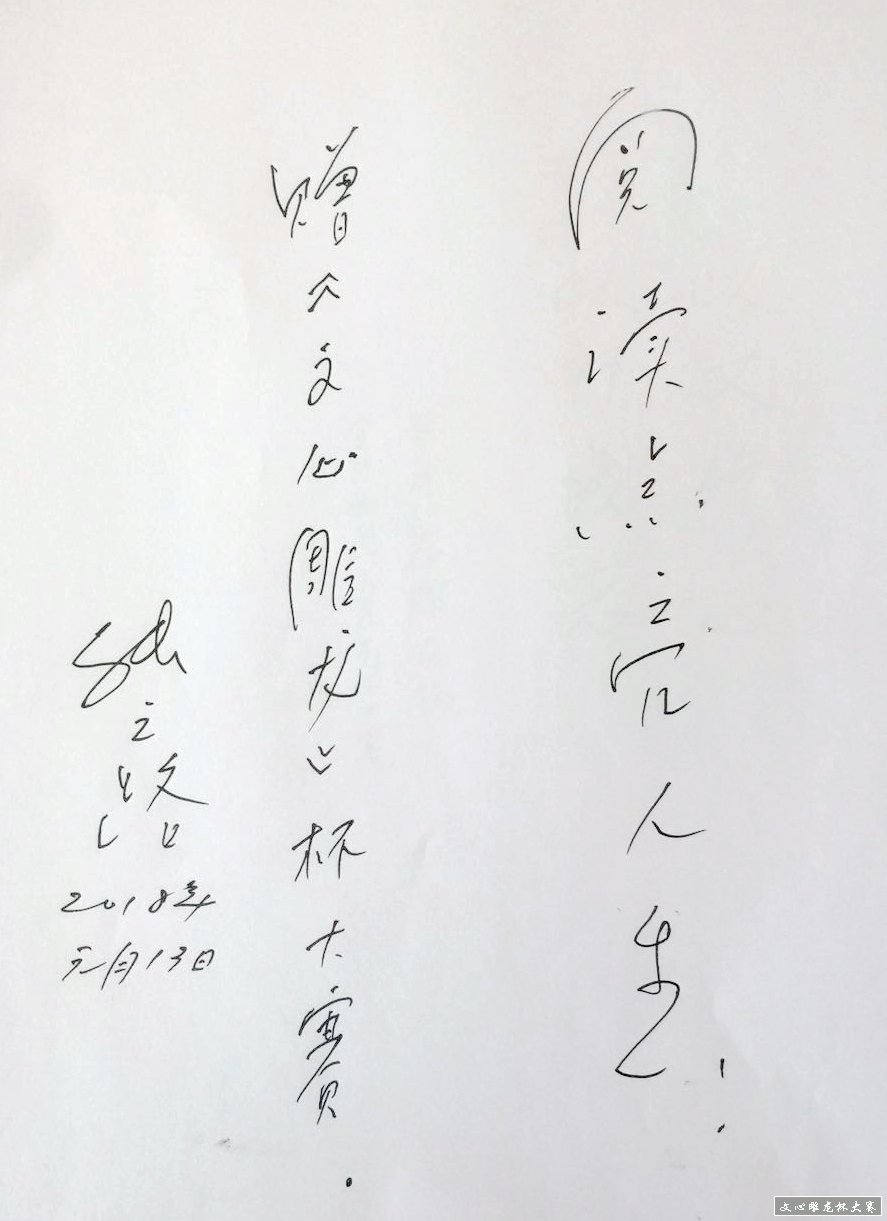 阅读点亮人生！
赠《文心雕龙》杯大赛.
张之路
2018年
元月13日
文心雕龙杯大赛